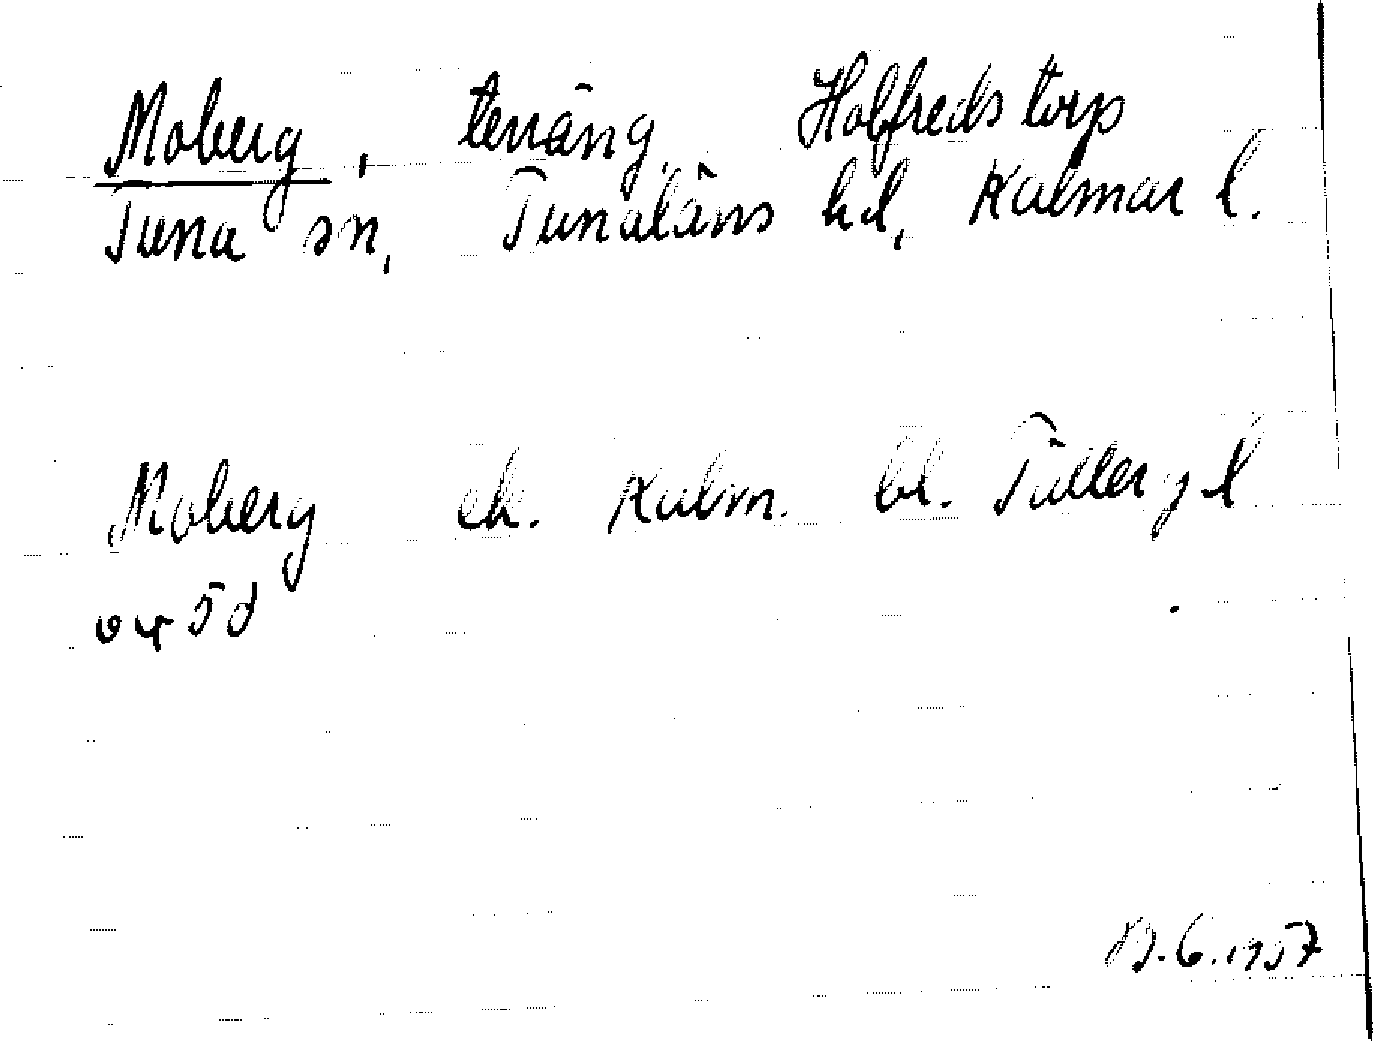 Moberg, terräng, Holfredstorp
Tuna sn, Tunaläns hd, Kalmar l.
Moberg ek. Kalm. bl. Tillergl
04 5d
6.1957